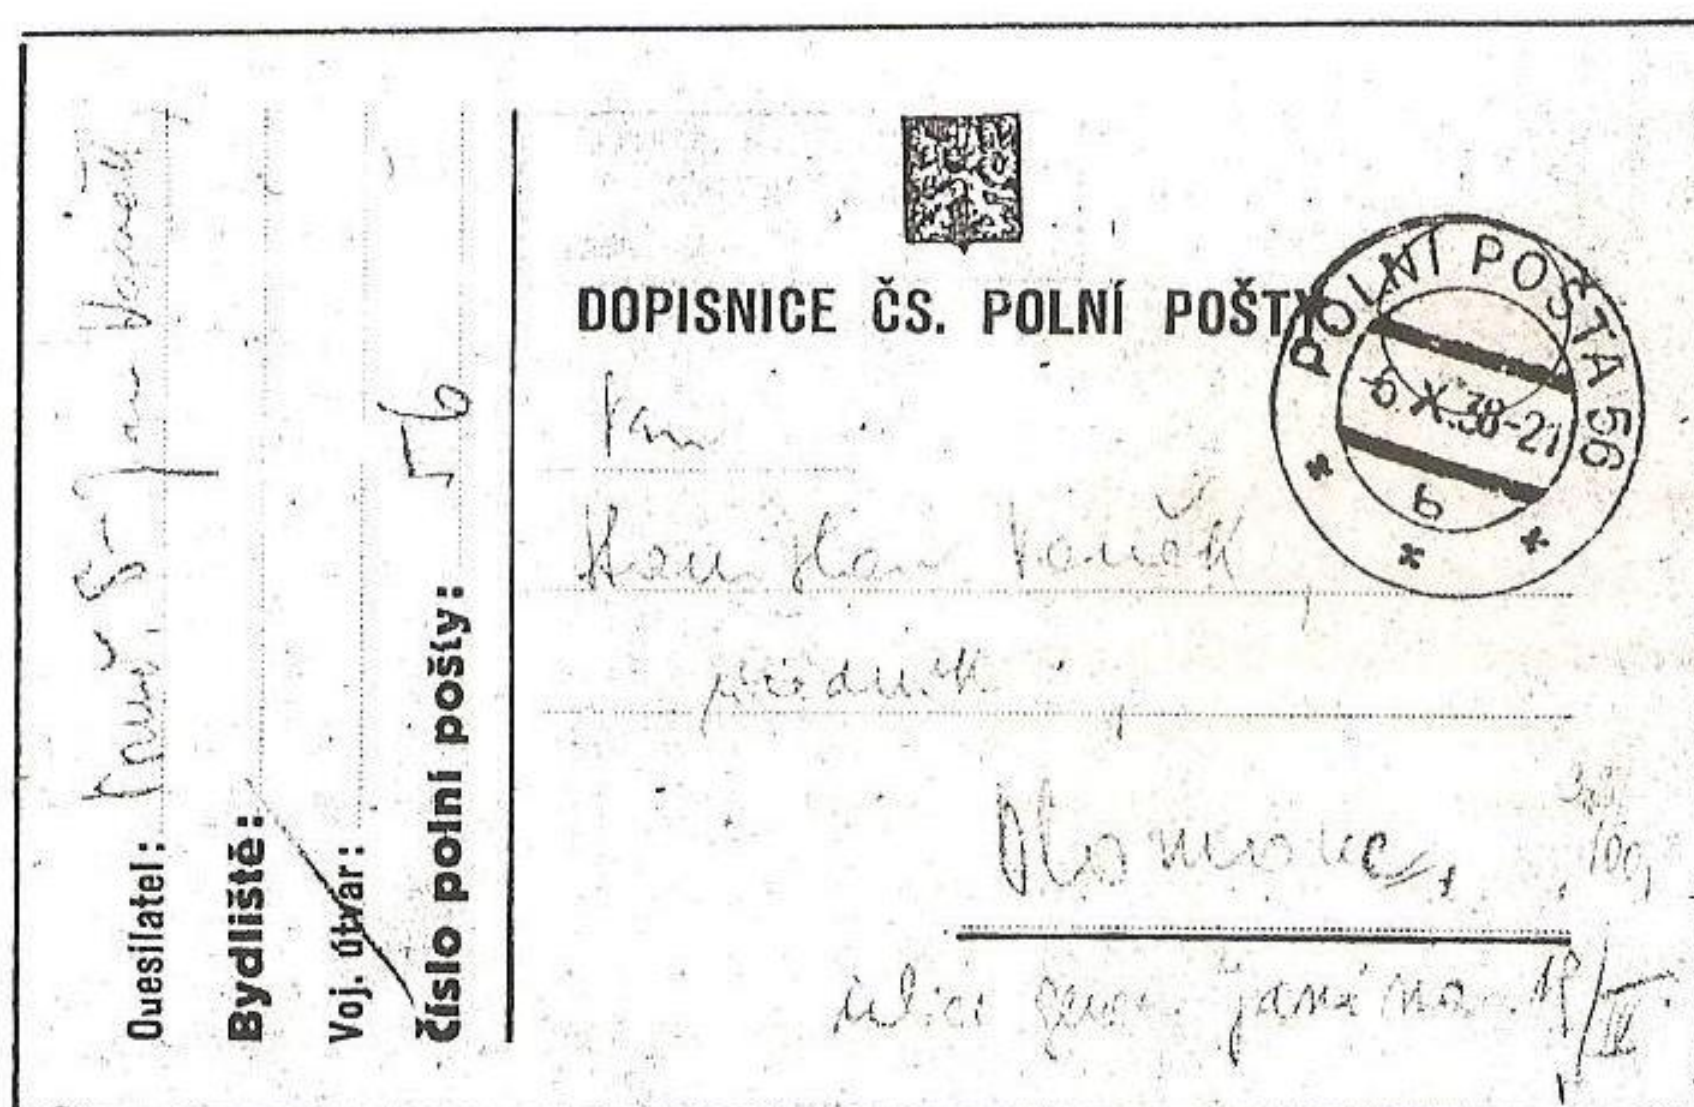 Odesilatel: Jan Vaněk
Bydliště:
Voj. útvar:
Číslo polní pošty: 56
DOPISNICE ČS. POLNÍ POŠTY
POLNÍ POŠTA 56
6.X.38-21
b
Pan
Stanislav Vaněk,
úředník
Olomouc,
ulice gen. Janina 19/IV.